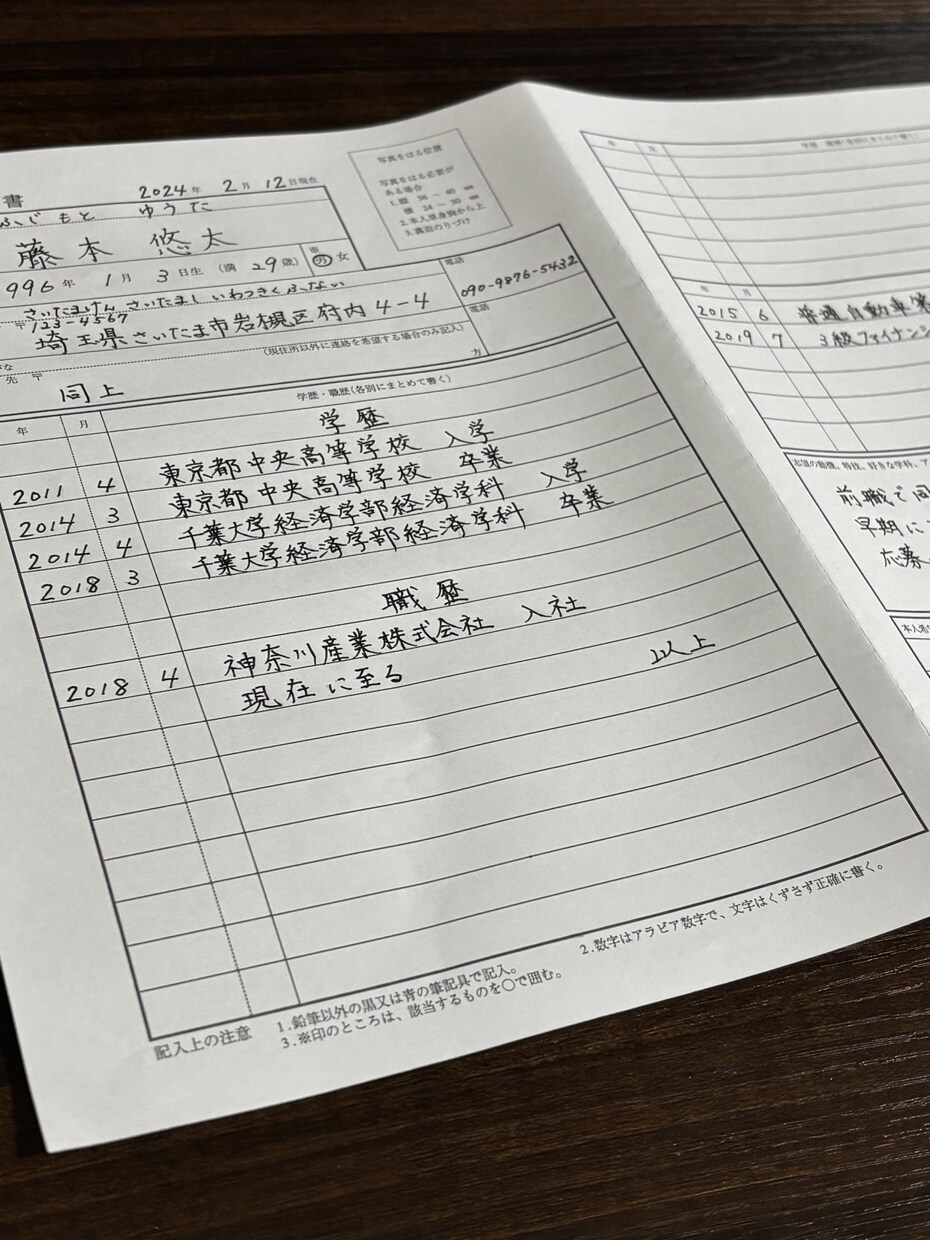 書
2024年 2月 12日現在
ふじもと ゆうた
藤本 悠太
996年 1月 3日生 (満 29歳)
※ 男 女
写真をはる位置
写真をはる必要が
ある場合
1.縦 36〜40 mm
横 24〜30 mm
2.本人単身胸から上
3.裏面のりづけ
さいたまけん さいたまし いわつきく ふない
〒123-4567
埼玉県さいたま市岩槻区府内4-4
電話
090-9876-5432
電話
(現住所以外に連絡を希望する場合のみ記入)
先 〒
方
同上
年 月 学歴・職歴(各別にまとめて書く)
学歴
2011 4 東京都中央高等学校 入学
2014 3 東京都中央高等学校 卒業
2014 4 千葉大学経済学部経済学科 入学
2018 3 千葉大学経済学部経済学科 卒業
職歴
2018 4 神奈川産業株式会社 入社
現在に至る
以上
記入上の注意
1.鉛筆以外の黒又は青の筆記具で記入。
2.数字はアラビア数字で、文字はくずさず正確に書く。
3.※印のところは、該当するものを○で囲む。
年 月
年 月
2015 6 普通自動車
2019 7 3級ファイナンシ
志望の動機、特技、好きな学科、ア
前職で
早期に
応募
本人希